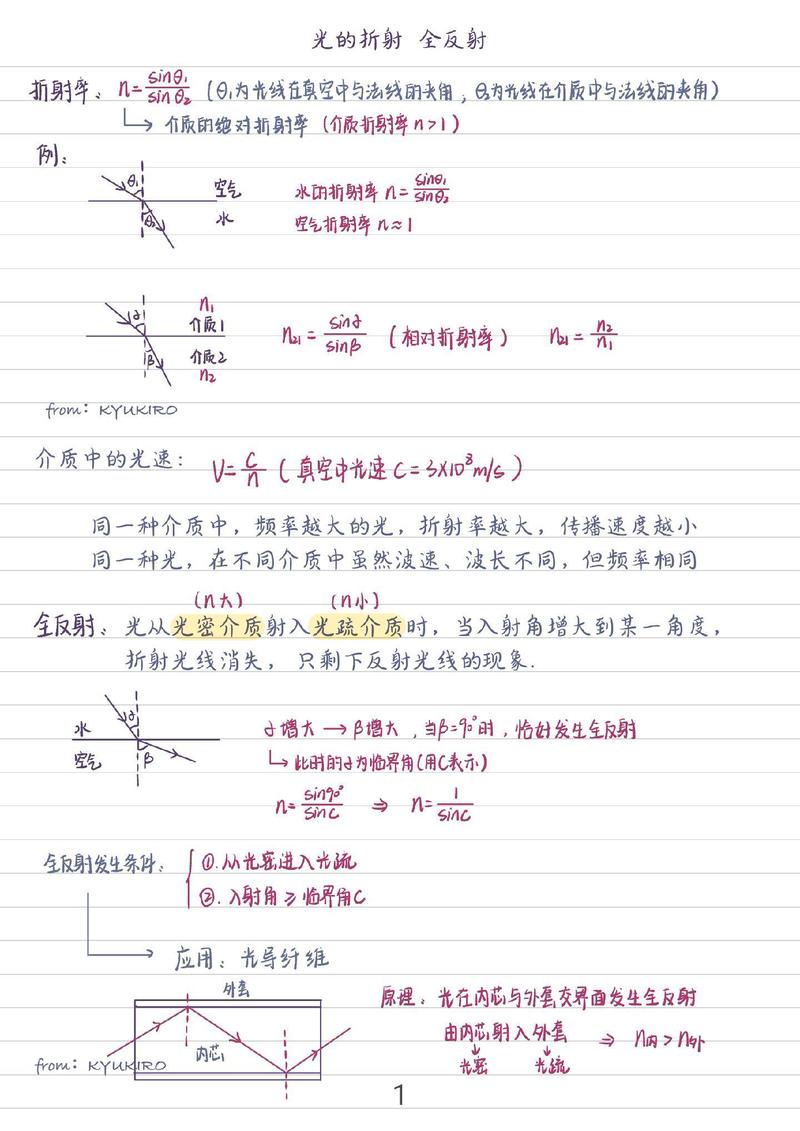 光的折射 全反射
折射率: n=sinθ₁/sinθ₂ (θ₁为光线在真空中与法线的夹角,θ₂为光线在介质中与法线的夹角)
介质的绝对折射率 (介质折射率n>1)
例:
θ₁ 空气
θ₂ 水
水的折射率 n=sinθ₁/sinθ₂
空气折射率 n≈1
n₁
α 介质1
β 介质2
n₂
n₂₁=sinα/sinβ (相对折射率) n₂₁=n₂/n₁
from: KYUKIRO
介质中的光速: V=C/n (真空中光速 C=3×10⁸m/s)
同一种介质中,频率越大的光,折射率越大,传播速度越小
同一种光,在不同介质中虽然波速、波长不同,但频率相同
(n大) (n小)
全反射: 光从光密介质射入光疏介质时,当入射角增大到某一角度,
折射光线消失, 只剩下反射光线的现象.
水 α
空气 β
α增大 → β增大 ,当β=90°时,恰好发生全反射
此时的α为临界角(用C表示)
n=sin90°/sinC ⇒ n=1/sinC
全反射发生条件:
①.从光密进入光疏
②.入射角≥临界角C
应用: 光导纤维
外套
内芯
原理: 光在内芯与外套交界面发生全反射
由内芯射入外套 ⇒ n内>n外
光密 光疏
from: KYUKIRO
1